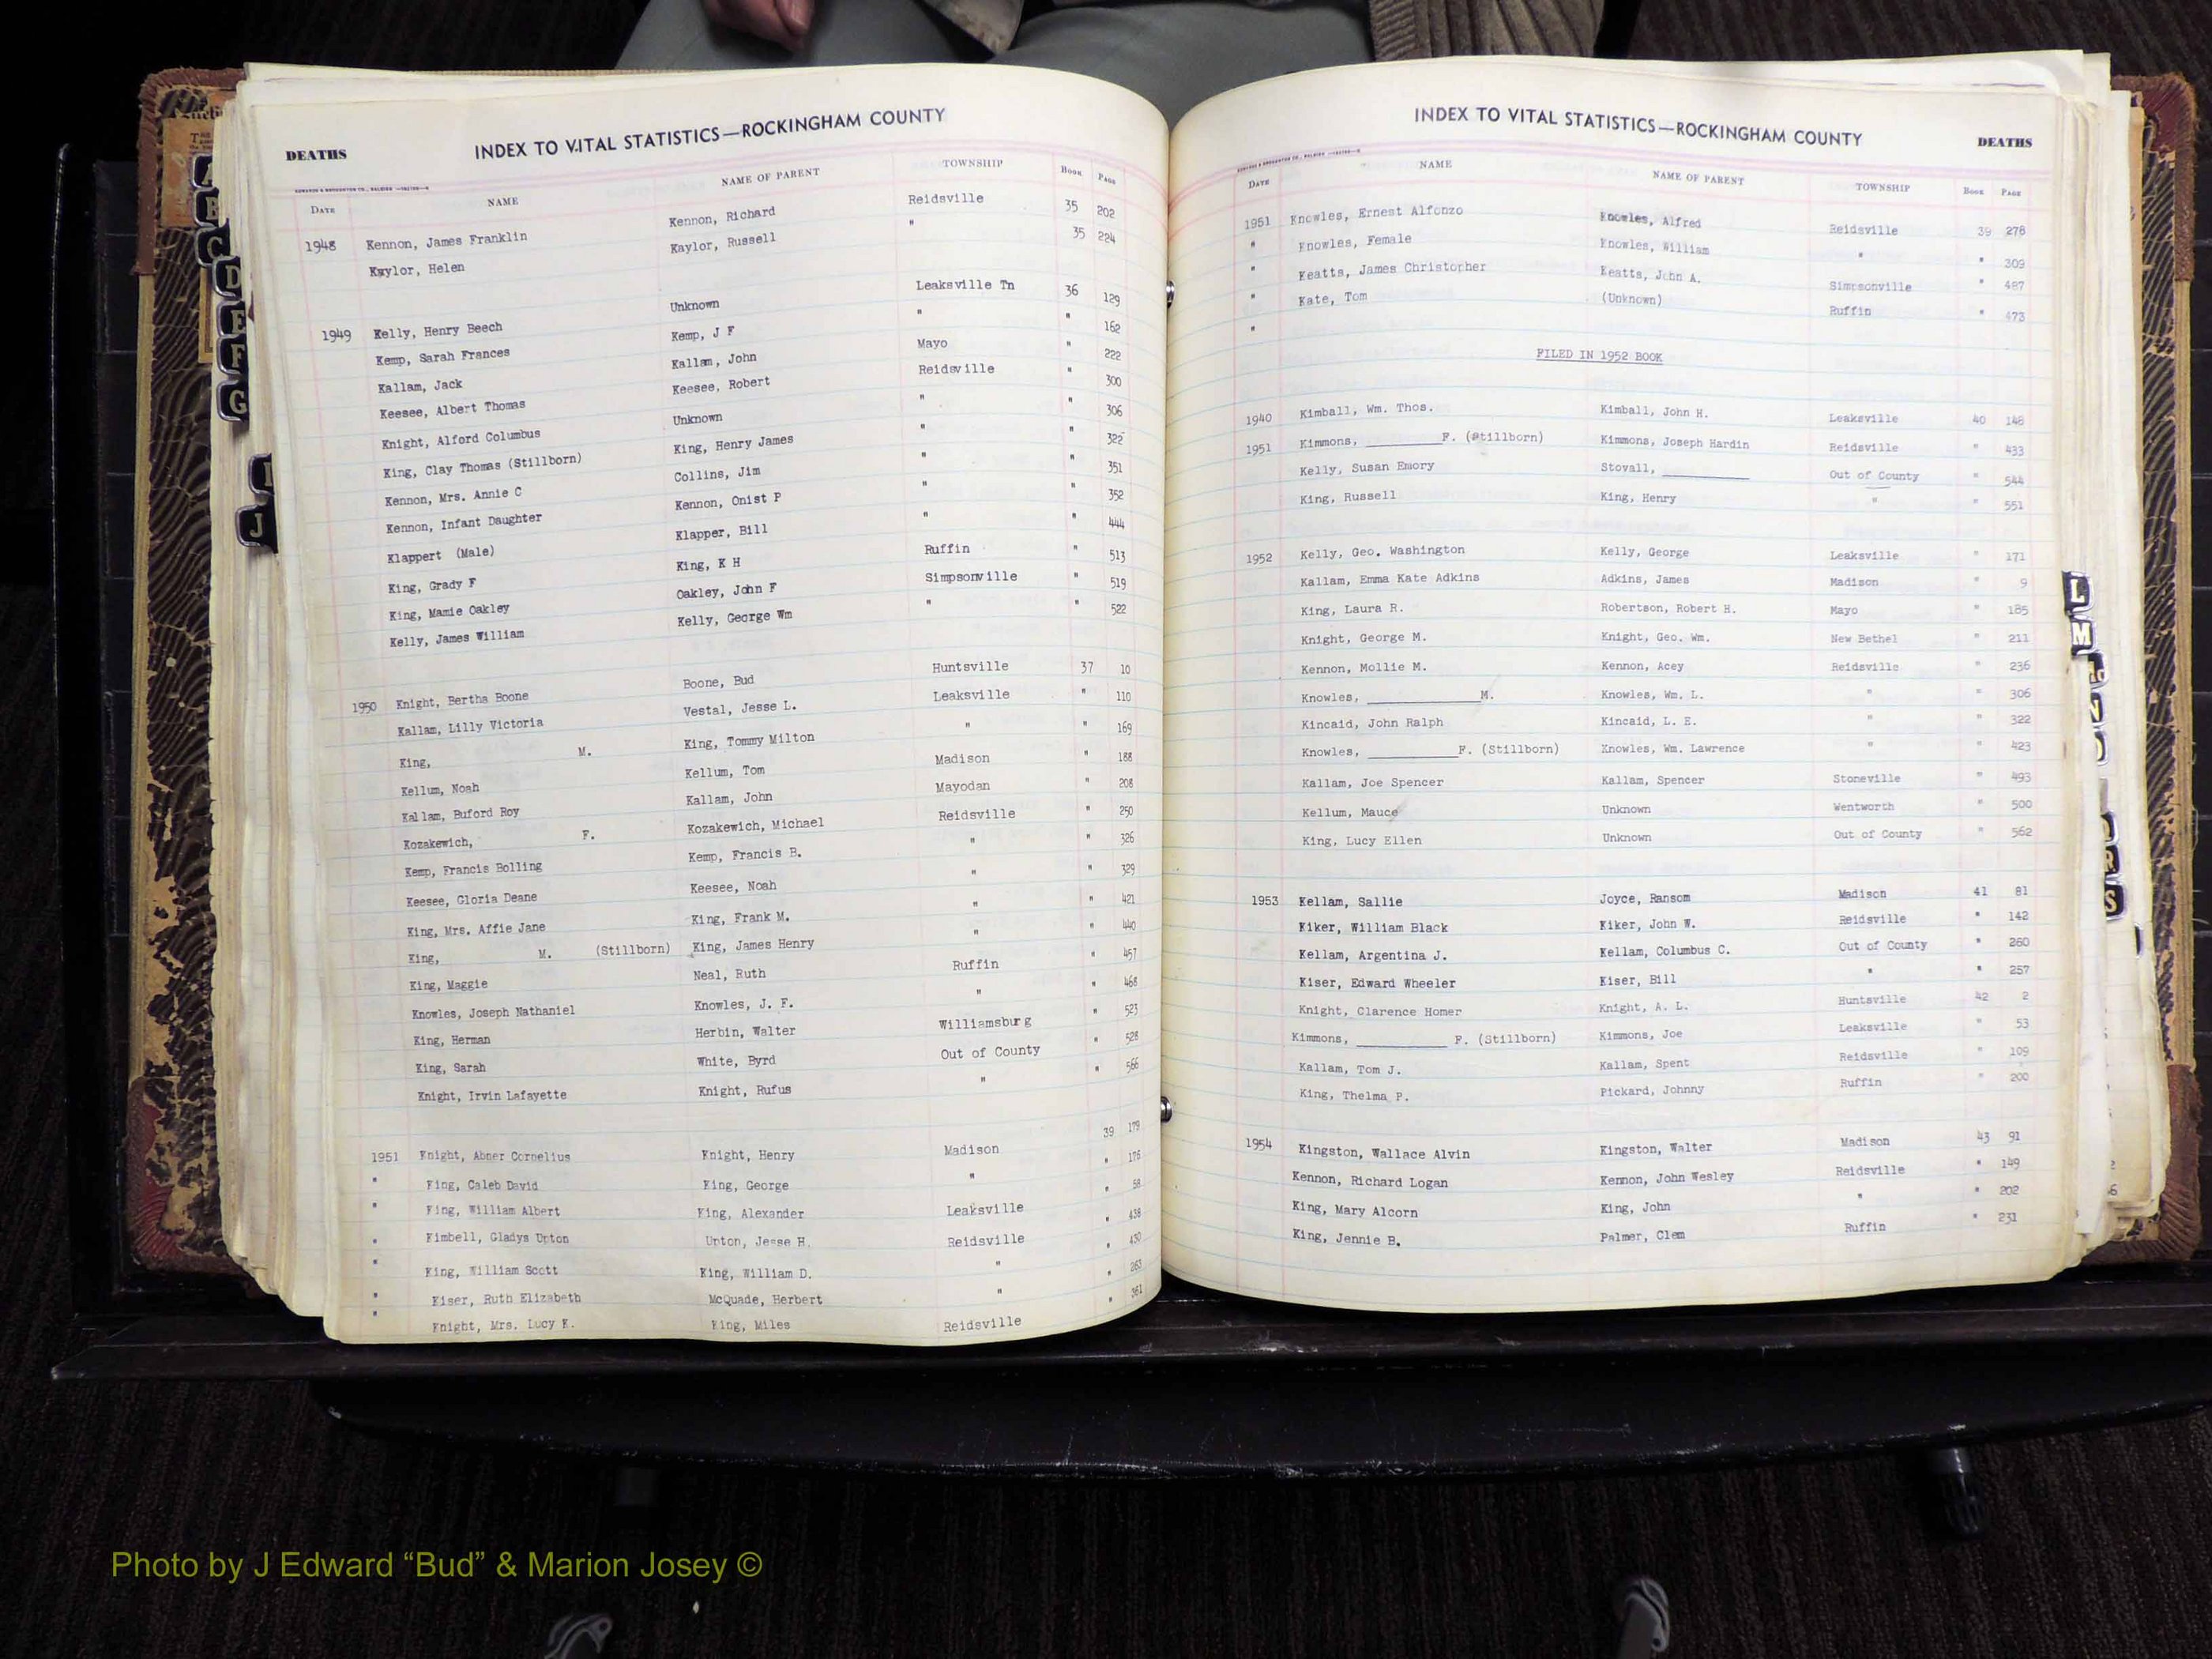 DEATHS INDEX TO VITAL STATISTICS—ROCKINGHAM COUNTY
DATE NAME NAME OF PARENT TOWNSHIP BOOK PAGE
1948 Kennon, James Franklin Kennon, Richard Reidsville 35 202
Kaylor, Helen Kaylor, Russell " 35 224
1949 Kelly, Henry Beech Unknown Leaksville Tn 36 129
Kemp, Sarah Frances Kemp, J F " " 162
Kallam, Jack Kallam, John Mayo " 222
Keesee, Albert Thomas Keesee, Robert Reidsville " 300
Knight, Alford Columbus Unknown " " 306
King, Clay Thomas (Stillborn) King, Henry James " " 322
Kennon, Mrs. Annie C Collins, Jim " " 351
Kennon, Infant Daughter Kennon, Onist P " " 352
Klappert (Male) Klapper, Bill " " 444
King, Grady F King, K H Ruffin " 513
King, Mamie Oakley Oakley, John F Simpsonville " 519
Kelly, James William Kelly, George Wm " " 522
1950 Knight, Bertha Boone Boone, Bud Huntsville 37 10
Kallam, Lilly Victoria Vestal, Jesse L. Leaksville " 110
King, M. King, Tommy Milton " " 169
Kellum, Noah Kellum, Tom Madison " 188
Kallam, Buford Roy Kallam, John Mayodan " 208
Kozakewich, F. Kozakewich, Michael Reidsville " 250
Kemp, Francis Bolling Kemp, Francis B. " " 326
Keesee, Gloria Deane Keesee, Noah " " 329
King, Mrs. Affie Jane King, Frank M. " " 421
King, M. (Stillborn) King, James Henry " " 440
King, Maggie Neal, Ruth Ruffin " 457
Knowles, Joseph Nathaniel Knowles, J. F. " " 468
King, Herman Herbin, Walter Williamsburg " 523
King, Sarah White, Byrd Out of County " 528
Knight, Irvin Lafayette Knight, Rufus " " 566
1951 Knight, Abner Cornelius Knight, Henry Madison 39 179
" King, Caleb David King, George " " 176
" King, William Albert King, Alexander Leaksville " 58
" Kimbell, Gladys Upton Upton, Jesse H. Reidsville " 438
" King, William Scott King, William D. " " 430
" Kiser, Ruth Elizabeth McQuade, Herbert " " 263
" Knight, Mrs. Lucy K. King, Miles Reidsville " 361
INDEX TO VITAL STATISTICS—ROCKINGHAM COUNTY DEATHS
DATE NAME NAME OF PARENT TOWNSHIP BOOK PAGE
1951 Knowles, Ernest Alfonzo Knowles, Alfred Reidsville 39 278
" Knowles, Female Knowles, William " " 309
" Keatts, James Christopher Keatts, John A. Simpsonville " 487
" Kate, Tom (Unknown) Ruffin " 473
"
FILED IN 1952 BOOK
1940 Kimball, Wm. Thos. Kimball, John H. Leaksville 40 148
1951 Kimmons, ________ F. (Stillborn) Kimmons, Joseph Hardin Reidsville " 433
Kelly, Susan Emory Stovall, ________ Out of County " 544
King, Russell King, Henry " " 551
1952 Kelly, Geo. Washington Kelly, George Leaksville " 171
Kallam, Emma Kate Adkins Adkins, James Madison " 9
King, Laura R. Robertson, Robert H. Mayo " 185
Knight, George M. Knight, Geo. Wm. New Bethel " 211
Kennon, Mollie M. Kennon, Acey Reidsville " 236
Knowles, ________ M. Knowles, Wm. L. " " 306
Kincaid, John Ralph Kincaid, L. E. " " 322
Knowles, ________ F. (Stillborn) Knowles, Wm. Lawrence " " 423
Kallam, Joe Spencer Kallam, Spencer Stoneville " 493
Kellum, Mauce Unknown Wentworth " 500
King, Lucy Ellen Unknown Out of County " 562
1953 Kellam, Sallie Joyce, Ransom Madison 41 81
Kiker, William Black Kiker, John W. Reidsville " 142
Kellam, Argentina J. Kellam, Columbus C. Out of County " 260
Kiser, Edward Wheeler Kiser, Bill " " 257
Knight, Clarence Homer Knight, A. L. Huntsville 42 2
Kimmons, ________ F. (Stillborn) Kimmons, Joe Leaksville " 53
Kallam, Tom J. Kallam, Spent Reidsville " 109
King, Thelma P. Pickard, Johnny Ruffin " 200
1954 Kingston, Wallace Alvin Kingston, Walter Madison 43 91
Kennon, Richard Logan Kennon, John Wesley Reidsville " 149
King, Mary Alcorn King, John " " 202
King, Jennie B. Palmer, Clem Ruffin " 231
A
B
C
D
E
F
G
J
L
M
N
R
S
Photo by J Edward “Bud” & Marion Josey ©